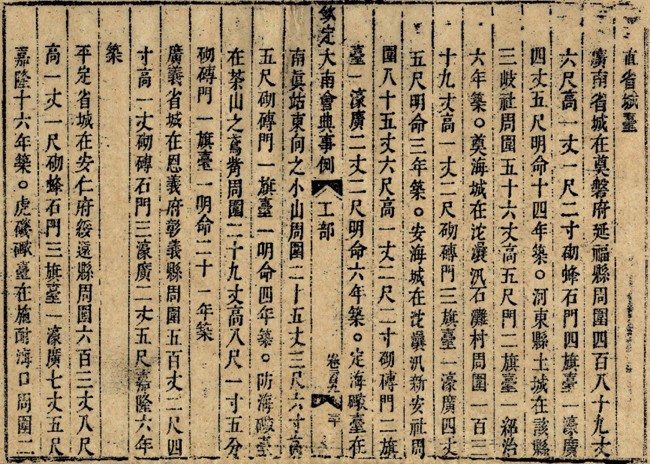 直省城臺
廣南省城在奠磐府延福縣周圍四百八十九丈
六尺高一丈一尺二寸砌蜂石門四旗臺一濠廣
四丈五尺明命十四年築。河東縣土城在該縣
三岐社周圍五十六丈高五尺門二旗臺一紹治
六年築。奠海城在沱㶞汛石灘村周圍一百三
十九丈高一丈二尺砌磚門三旗臺一濠廣四丈
五尺明命三年築。安海城在沱㶞汛新安社周
圍八十五丈六尺高一丈二尺二寸砌磚門二旗
臺一濠廣二丈二尺明命六年築。定海礮臺在
欽定大南會典事例 工部
南眞站東向之小山周圍二十五丈三尺六寸高
五尺砌磚門一旗臺一明命四年築。防海礮臺
在茶山之左周圍二十九丈高八尺一寸五分
砌磚門一旗臺一明命二十一年築
廣義省城在思義府彰義縣周圍五百丈二尺四
寸高一丈砌磚石門三濠廣二丈五尺嘉隆六年
築
平定省城在安仁府綏遠縣周圍六百三丈八尺
高一丈一尺砌蜂石門三旗臺一濠廣七丈五尺
嘉隆十六年築。虎磯礮臺在施耐海口周圍二